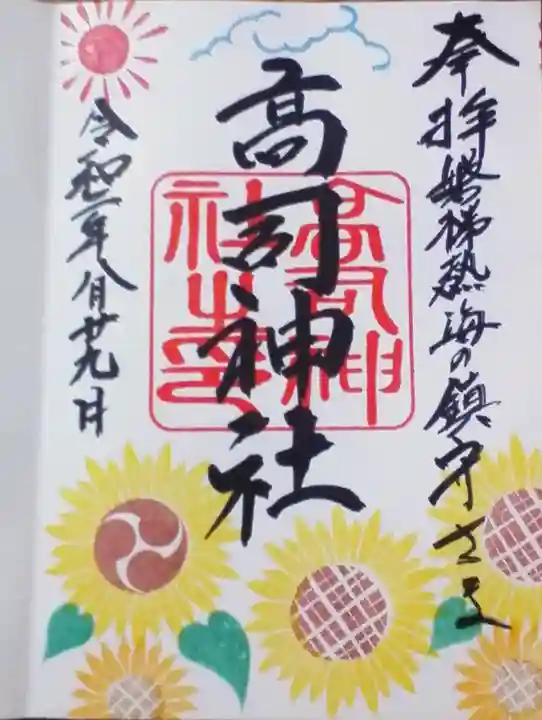 奉拝磐梯熱海の鎮守さま
高司神社
高司神社之印
令和二年八月廿九日